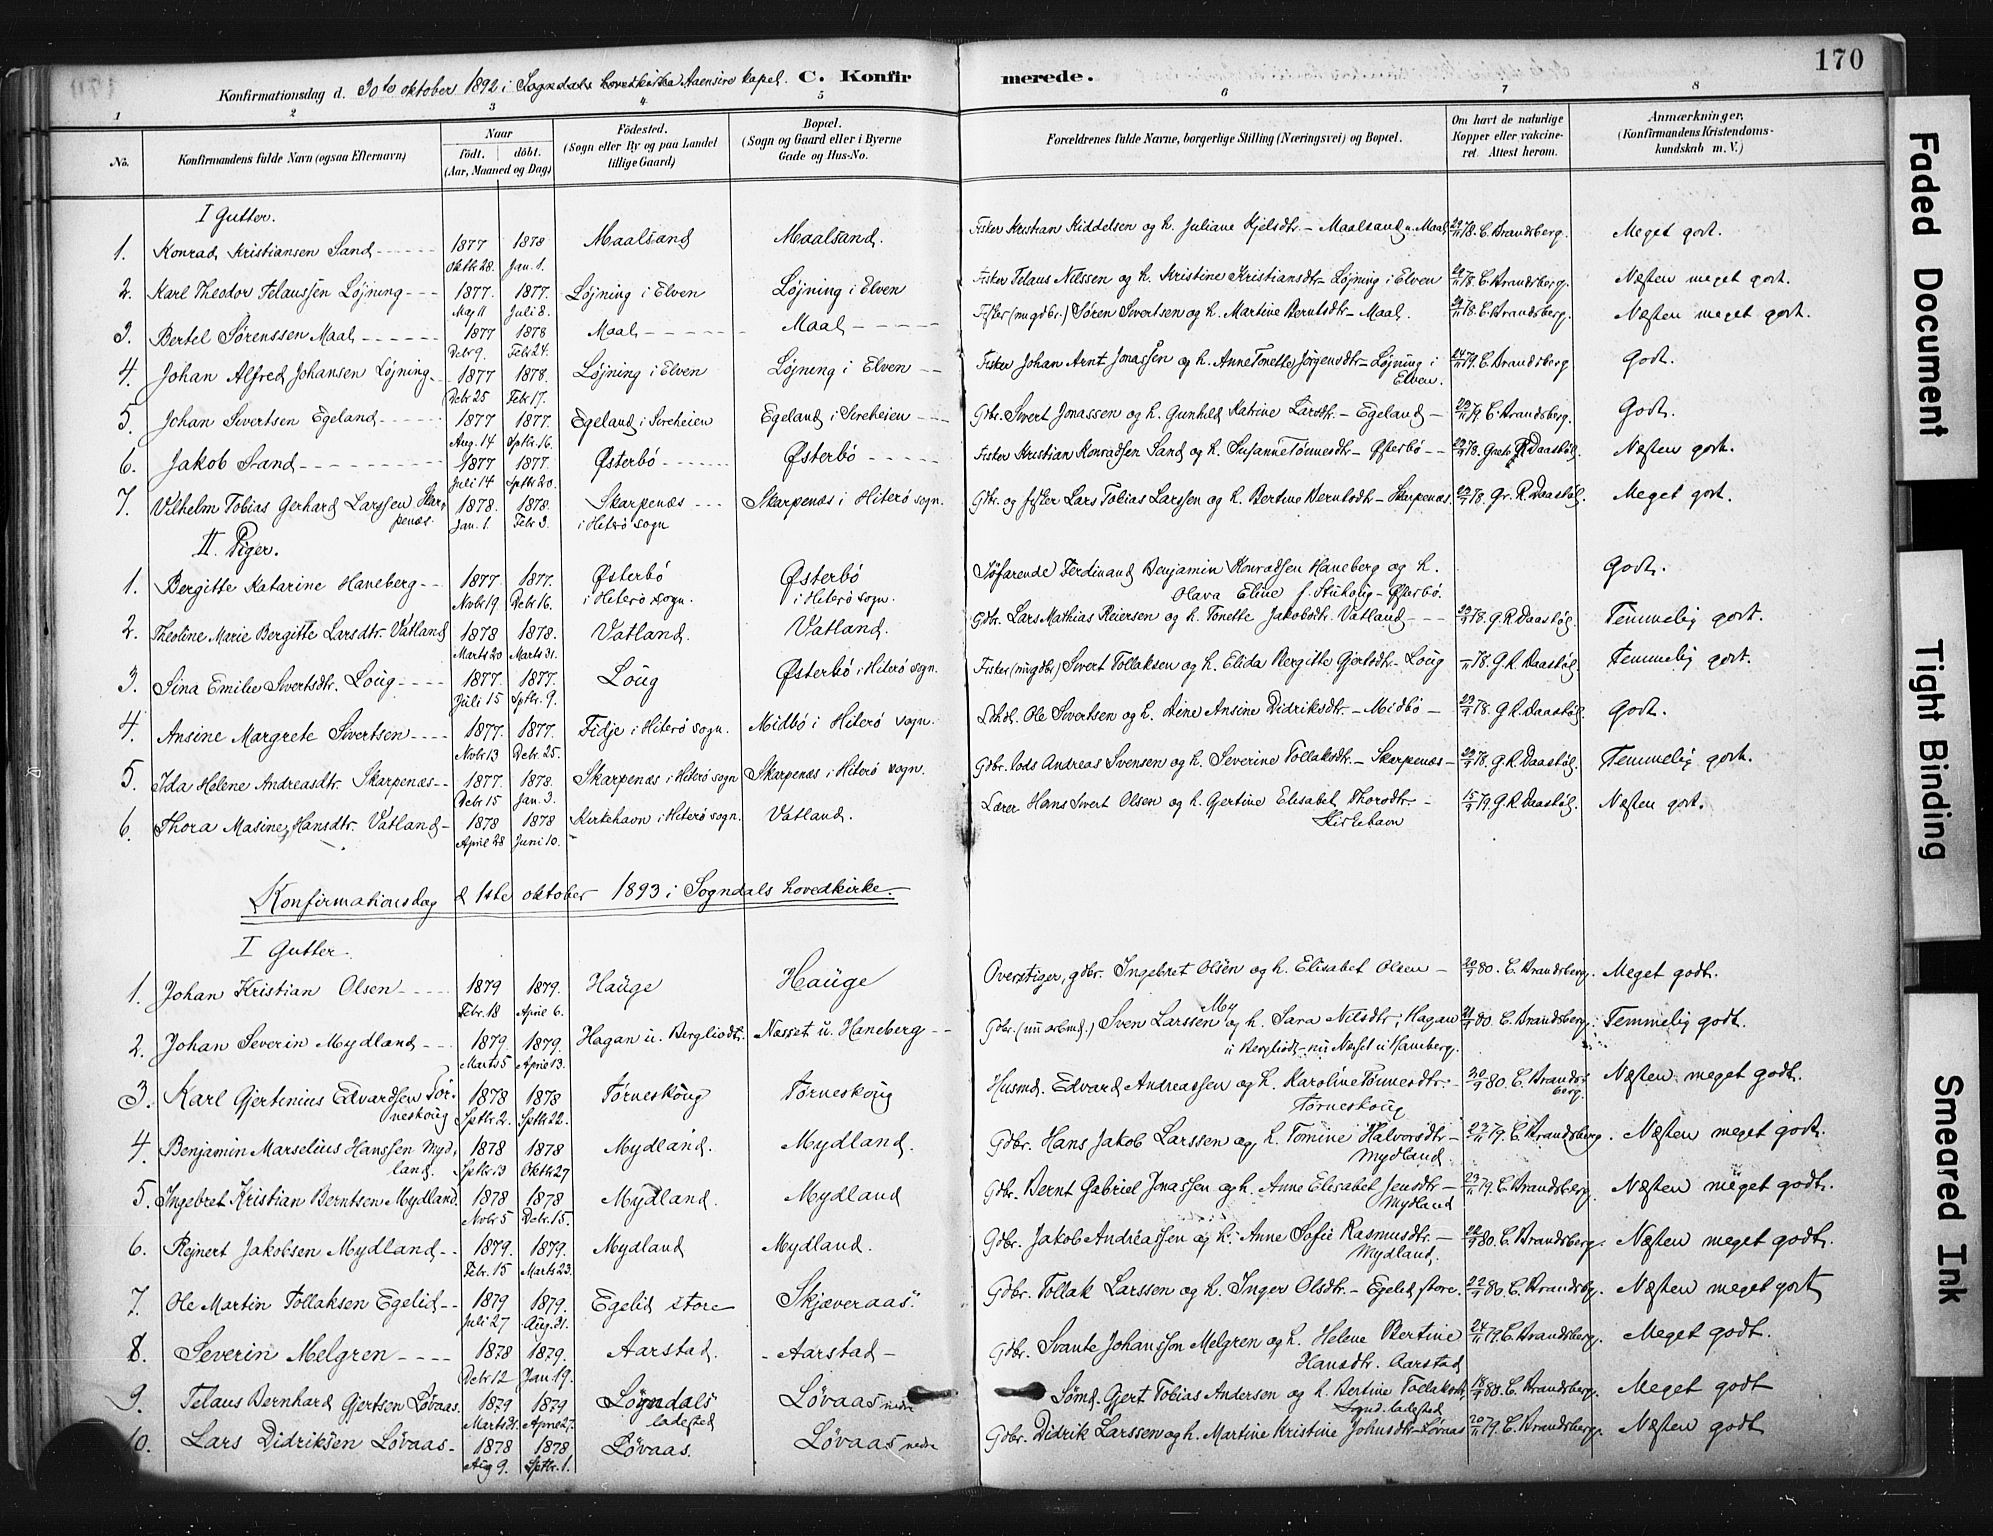 170
Konfirmationsdag d. 30te oktober 1892 i Sogndals hovedkirke Aaensire kapel. C. Konfirmerede.
1 2 3 4 5 6 7 8
No. Konfirmandens fulde Navn (ogsaa Efternavn) Naar født. døbt. (Aar, Maaned og Dag) Fødested. (Sogn eller By og paa Landet tillige Gaard) Bopæl. (Sogn og Gaard eller i Byerne Gade og Hus-No. Forældrenes fulde Navne, borgerlige Stilling (Næringsvei) og Bopæl. Om havt de naturlige Kopper eller vakcineret Attest herom. Anmærkninger, (Konfirmandens Kristendomskundskab m. V.)
I Gutter.
1. Konrad Kristiansen Sand 1877 1878 Maalsand Maalsand. Fisker Kristian Kiddelsen og h. Juliane Kjelsdtr. – Maalsand u. Maal 78. C. Strandsberg. Meget godt.
oktbr 28. Jan. 1.
2. Karl Theodor Telaussen Løjning 1877. 1877. Løjning i Elven Løjning i Elven Fisker Telaus Nilssen og h. Kristine Kristiansdtr – Løjning i Elven 78. C. Strandsberg. Næsten meget godt.
Maj 11 Juli 8.
3. Bertel Sørenssen Maal 1877 1878 Maal Maal Fisker (nu gdbr.) Søren Sivertsen og h. Martine Berntsdtr – Maal. 78. C. Strandsberg. Næsten meget godt.
Debr 9. Febr 24.
4. Johan Alfred Johansen Løjning 1877 1878. Løjning i Elven Løjning i Elven Fisker Johan Arnt Jonassen og h. Anne Tonette Jørgensdtr – Løjning i Elven. 24/11 79. C. Strandsberg Godt.
Debr 25 Febr 17.
5. Johan Sivertsen Egeland 1877 1877. Egeland i Sireheien Egeland i Sireheien Gdbr. Sivert Jonassen og h. Gunhild Katrine Larsdtr. – Egeland – 79 C. Strandsberg. Godt.
Aug. 14 Sptbr. 16.
6. Jakob Sand 1877 1877. Østerbö Østerbö Fisker Kristian Konradsen Sand og h. Susanne Tønnesdtr – Østerbö 78. R. Daastøl. Næsten godt.
Juli 14 Sptbr 20.
7. Vilhelm Tobias Gerhard Larssen Skarpenæs. 1878. 1878. Skarpenæs Skarpenæs i Hiterö sogn. Gbr. og fisker Lars Tobias Larssen og h. Bertine Berntsdtr – Skarpenæs. 78. Gr. R. Daastøl. Meget godt.
Jan. 1. Febr 3. i Hiterö sogn
II. Piger.
1. Bergitte Katarine Haneberg 1877. 1877. Østerbö Østerbö Søfarende Ferdinand Benjamin Konradsen Haneberg og h. Godt.
Novbr 19 Debr 16. i Hiterö sogn. i Hiterö sogn. Olava Eline – Østerbö.
2. Theoline Marie Bergitte Larsdtr. Vatland 1878 1878. Vatland. Vatland. Gdbr. Lars Mathias Reiersen og h. Tonette Jakobsdtr. Vatland 78. G. R. Daastøl. Temmelig godt.
Marts 20 Marts 31.
3. Sina Emilie Sivertsdtr. Loug 1877. 1877. Loug Østerbö i Hiterö sogn. Fisker (nu gdbr) Sivert Tollaksen og h. Elida Bergitte Gjertsdtr – Loug 78. G. R. Daastøl. Temmelig godt.
Juli 15 Sptbr. 9.
4. Ansine Margrete Sivertsen 1877. 1877. Fidje i Hiterö sogn. Midbö i Hiterö sogn. Ole Sivertsen og h. Dine Ansine Didriksdtr. – Midbö – 78. G. R. Daastøl. Godt.
Novbr 13 Debr. 25.
5. Ida Helene Andreasdtr. Skarpenæs 1877. 1878. Skarpenæs i Hiterö sogn Skarpenæs i Hiterö sogn. Gdbr. lods Andreas Svensen og h. Severine Tollaksdtr. – Skarpenæs – 78. G. R. Daastøl. Temmelig godt.
Debr 15 Jan. 3.
6. Thora Masine Hansdtr. Vatland 1878 1878 Kirkehavn i Hiterö sogn. Vatland. Lærer Hans Sivert Olsen og h. Gjertine Elisabet Thorsdtr. – Kirkehavn 79 G. R. Daastøl. Næsten godt.
April 28 Juni 10.
Konfirmationsdag d 1ste oktober 1893 i Sogndals hovedkirke.
I Gutter.
1. Johan Kristian Olsen 1879 1879. Hauge Hauge Overstiger, gdbr. Ingebret Olsen og h. Elisabet Olsen – 80. C. Strandsberg. Meget godt.
Febr. 18 April 6.
2. Johan Severin Mydland 1879 1879. Hagan u. Bergliodt. Næsset u. Haneberg Gdbr. (nu arbmd.) Sven Larssen My og h. Sara Nilsdtr, Hagan u Bergliodt – nu Næset u Haneberg. 80. C. Strandsberg. Temmelig godt.
Marts 5 April 13.
3. Karl Gjertinius Edvardsen Tørneskoug 1878 1878 Tørneskoug Tørneskoug Husmd. Edvard Andreassen og h. Karoline Tønnesdtr. – Tørneskoug 80. C. Strandsberg. Næsten meget godt.
Sptbr. 2. Sptbr 22.
4. Benjamin Marselius Hanssen Mydland. 1878 1878 Mydland. Mydland. Gdbr. Hans Jakob Larssen og h. Tomine Halvorsdtr – Mydland. 79. C. Strandsberg. Næsten meget godt.
Sptbr 13 Oktbr 27
5. Ingebret Kristian Berntsen Mydland. 1878 1878 Mydland. Mydland Gdbr. Bernt Gabriel Jonassen og h. Anne Elisabet Jensdtr – Mydland 79. C. Strandsberg. Næsten meget godt.
Novbr 5 Debr. 15.
6. Rejnert Jakobsen Mydland 1879. 1879. Mydland Mydland. Gdbr. Jakob Andreassen og h. Anne Sofie Rasmusdtr. – Mydland. 80. C. Strandsberg. Næsten meget godt.
Febr. 15 Marts 23.
7. Ole Martin Tollaksen Egelid 1879 1879. Egelid store Skjæveraas. Gdbr. Tollak Larssen og h. Inger Olsdtr. – Egelid store. 80. C. Strandsbrg. Næsten meget godt
Juli 27 Aug. 31.
8. Severin Melgren 1878 1879. Aarstad. Aarstad – Gdbr. Svante Johansson Melgren og h. Helene Bertine Hansdtr. Aarstad 24/11 79 C. Strandsberg. Meget godt.
Debr 12 Jan 19.
9. Telaus Bernhard Gjertsen Løvaas. 1879 1879 Sogndals ladested Løvaas nedre Sömd. Gjert Tobias Andersen og h. Bertine Tollaksdtr, Sogd. ladested 80. C. Strandsberg. Meget godt
Marts April 27.
10. Lars Didriksen Løvaas 1878 1878. Løvaas. Løvaas nedre Gdbr. Didrik Larssen og h. Martine Kristine Johnsdtr – Løvaas 79. C. Strandsberg. Næsten godt
Aug 9. Sptbr. 1.
Faded Document
Tight Binding
Smeared Ink